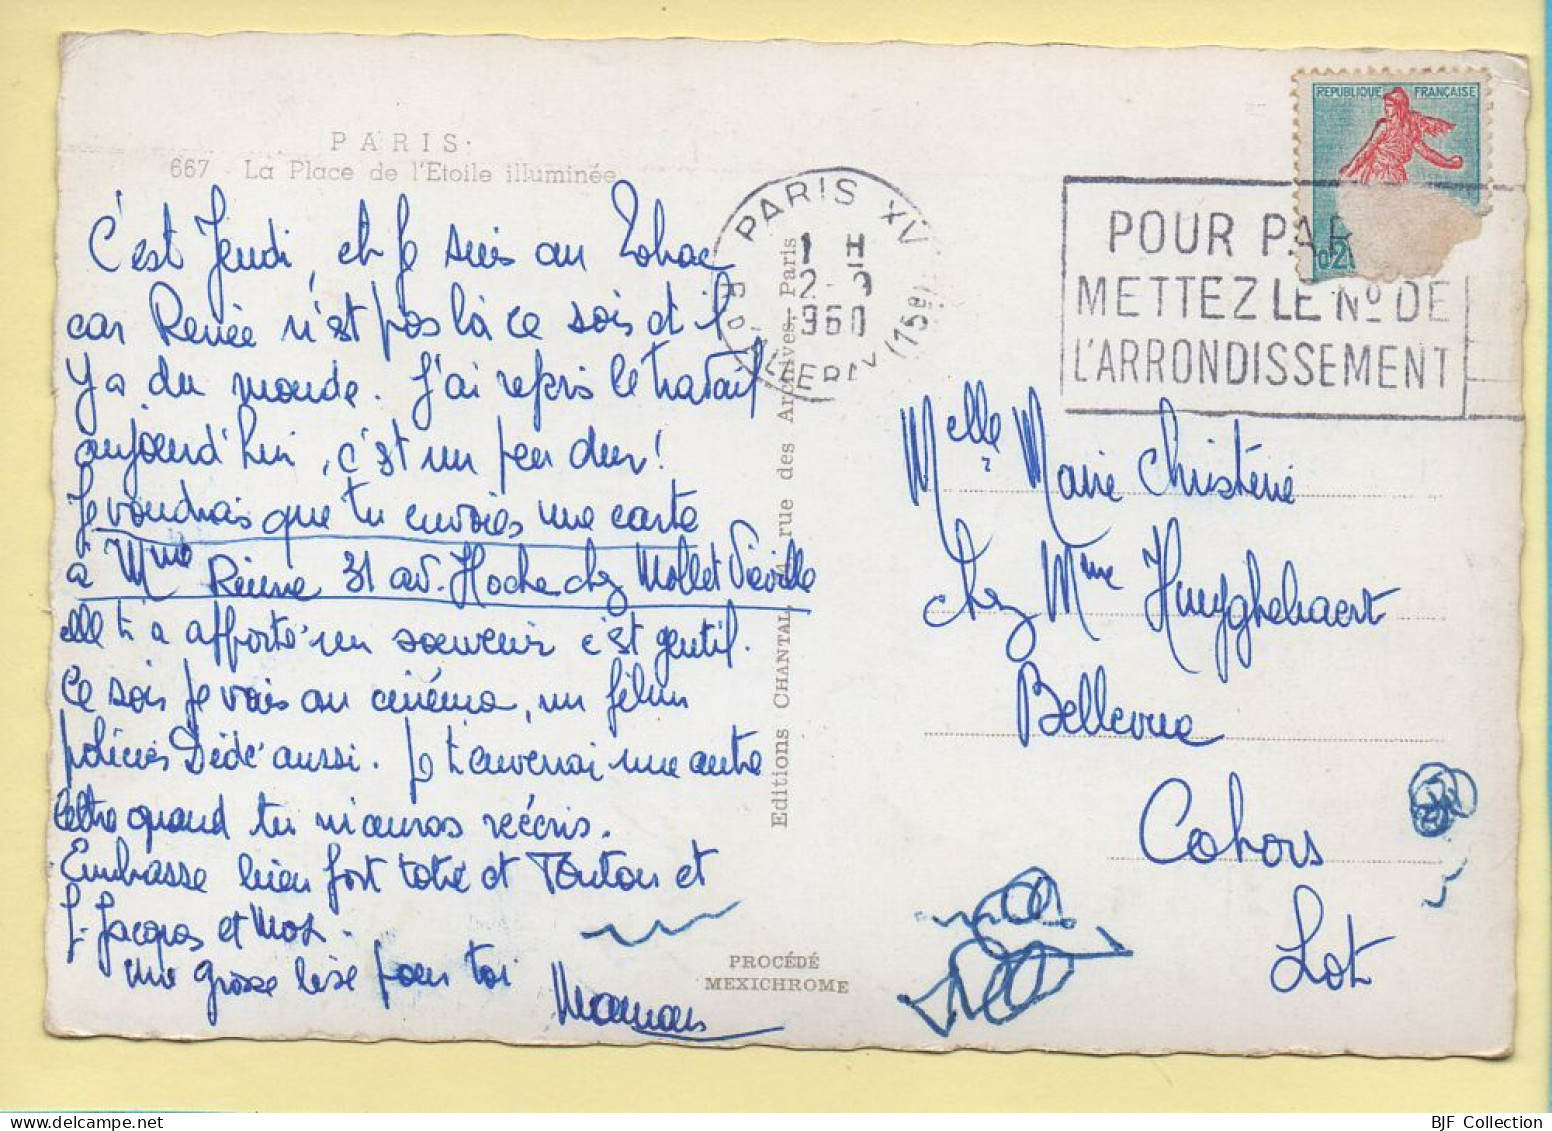 PARIS.
667 - La Place de l'Etoile illuminée
C'est Jeudi, et je suis au Tabac
car Renée n'est pas là ce soir et il
y a du monde. J'ai repris le travail
aujourd'hui, c'est un peu dur!
Je voudrais que tu envoies une carte
à Mme 31 av. Hoche chez Mollet Viéville
elle t'a apporté un souvenir c'est gentil.
Ce soir je vais au cinéma, un film
policier Dédé aussi. Je t'enverrai une autre
lettre quand tu m'auras réécris.
Embasse bien fort tatie et Tonton et
J. Jacques et
une grosse bise pour toi
Maman
Editions CHANTAL, rue des Archives, Paris
PROCÉDÉ
MEXICHROME
PARIS XV
1 H
2-9
960
(15e)
POUR PAR
METTEZ LE No DE
L'ARRONDISSEMENT
REPUBLIQUE FRANÇAISE
0,2
Melle Marie Christine
chez Mme Huyghebaert
Bellevue
Cahors
Lot
BJF Collection